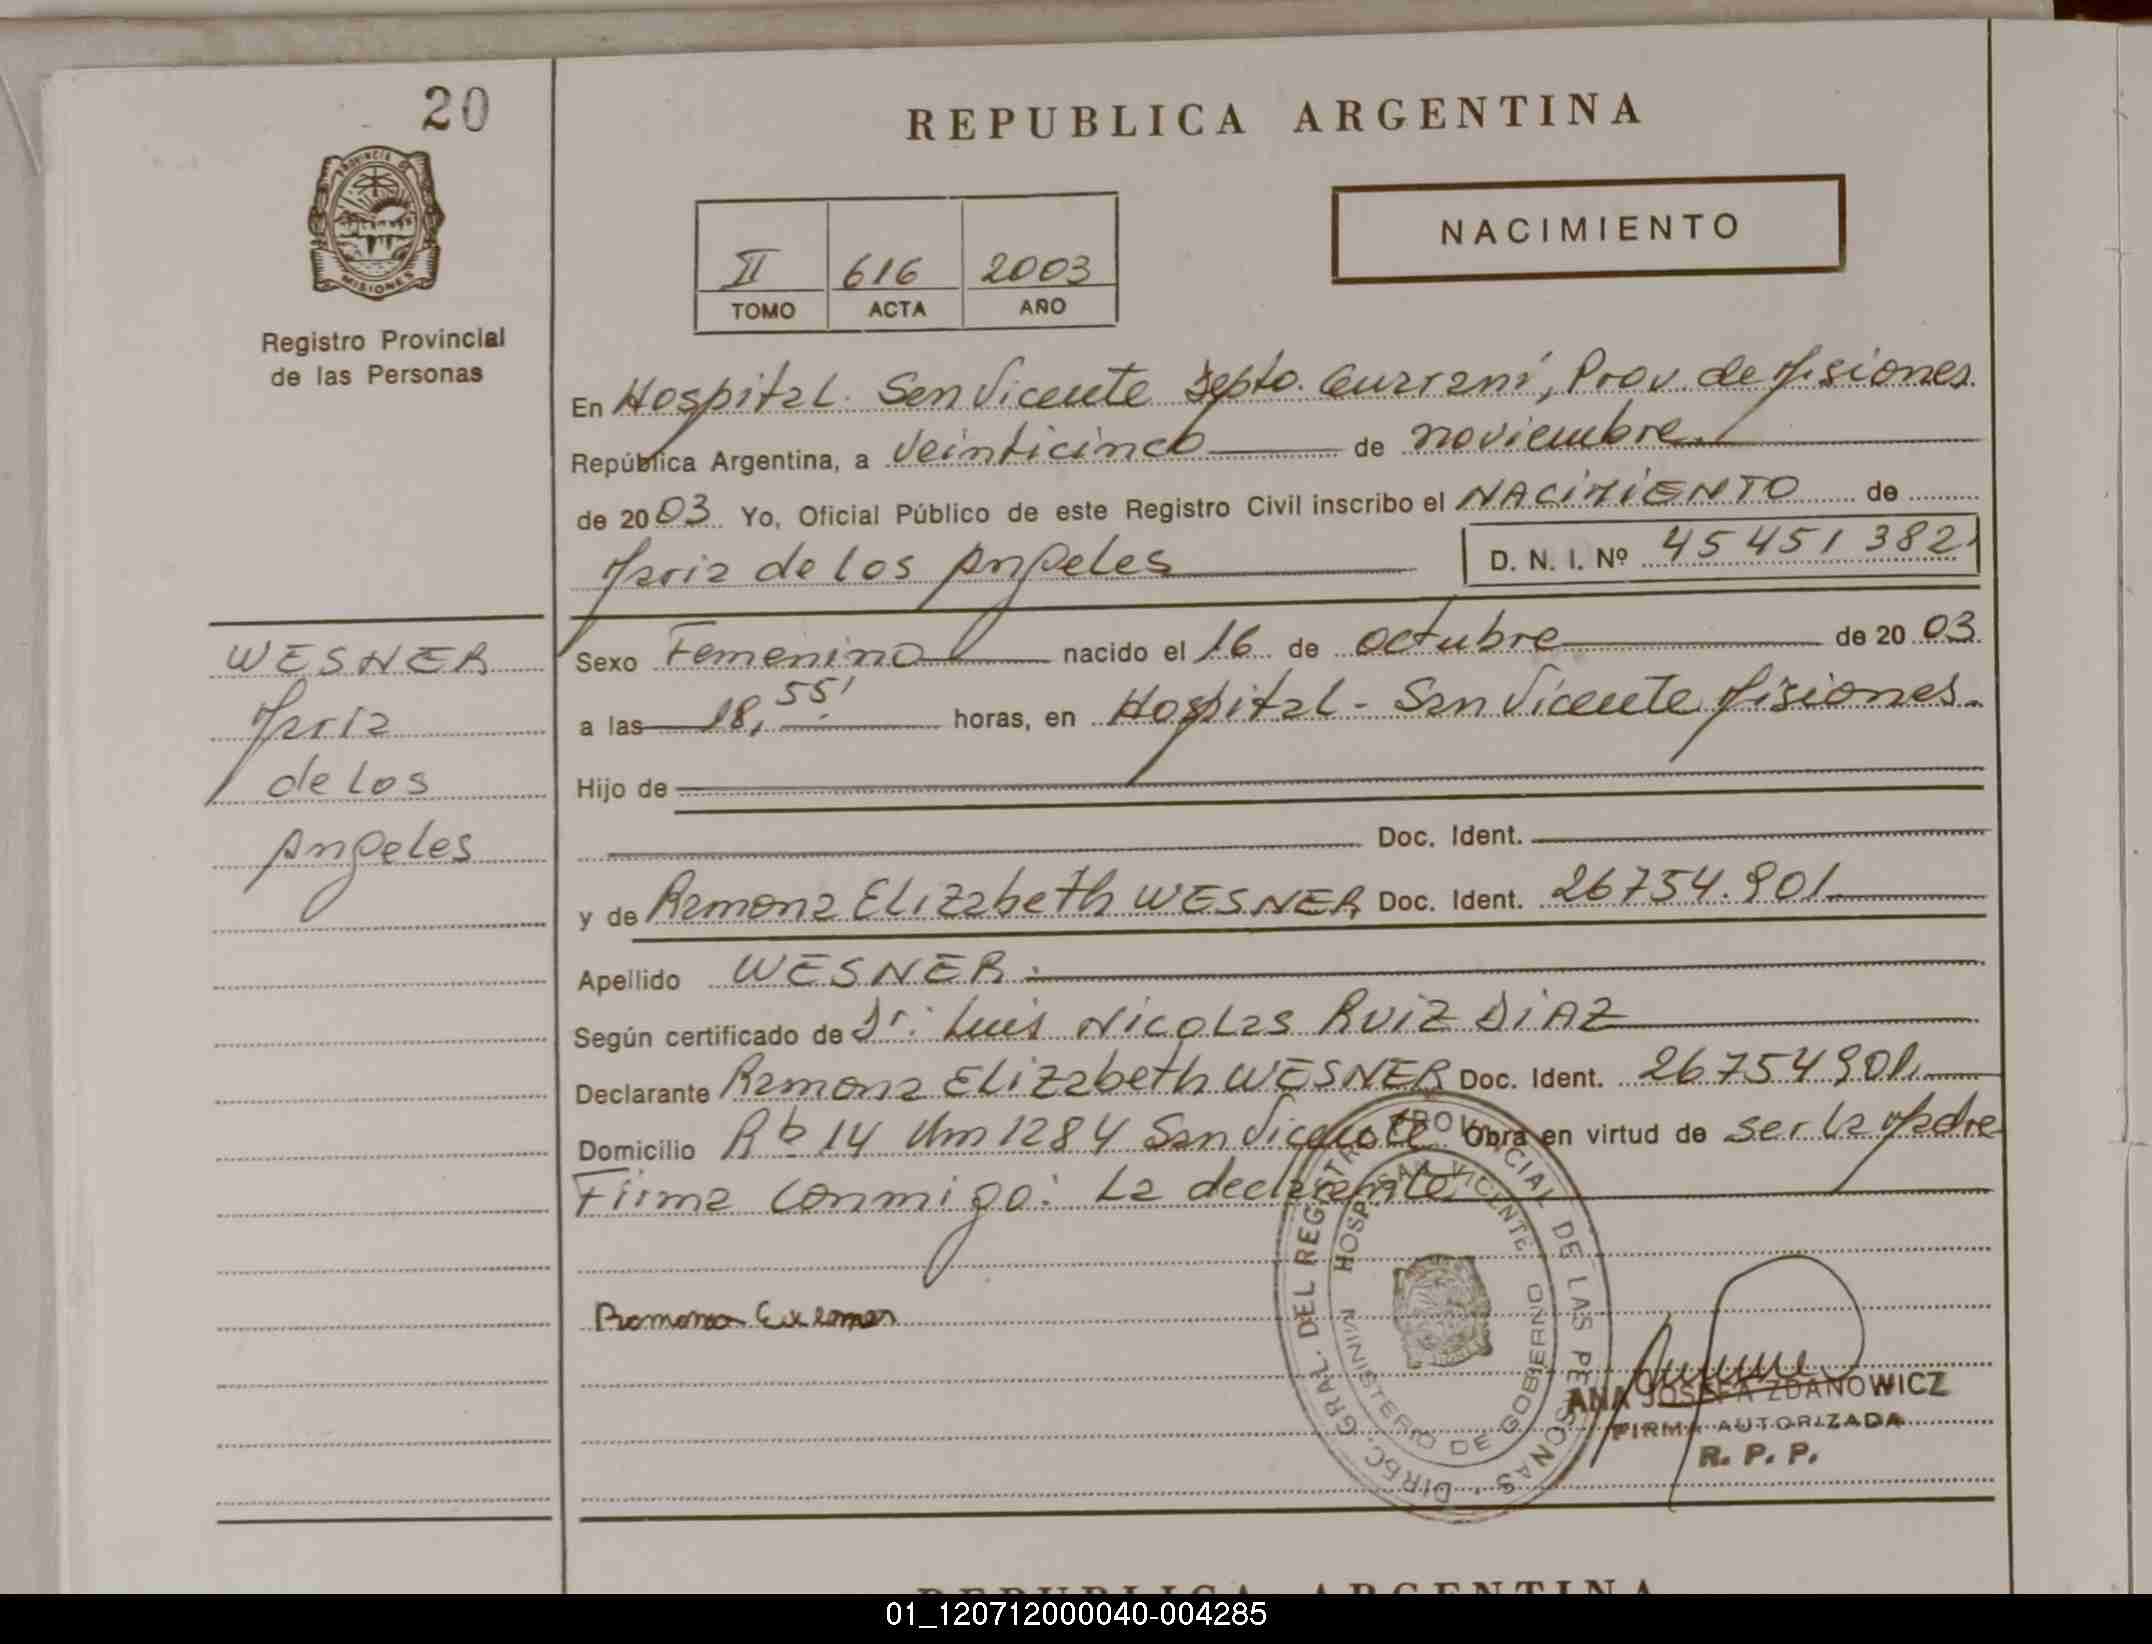 20
REPUBLICA ARGENTINA
PROVINCIA DE
MISIONES
NACIMIENTO
II 616 2003
TOMO ACTA AÑO
Registro Provincial
de las Personas
En Hospital. San Vicente Depto. Guaraní, Prov. de Misiones.
República Argentina, a veinticinco de noviembre.
de 2003 Yo, Oficial Público de este Registro Civil inscribo el NACIMIENTO de
Maria de los Angeles D. N. I. Nº 45451382
WESNER
Maria
de los
Angeles
Sexo Femenino nacido el 16 de octubre de 2003.
a las 18,55' horas, en Hospital - San Vicente Misiones.
Hijo de
Doc. Ident.
y de Ramona Elizabeth WESNER Doc. Ident. 26754.901.
Apellido WESNER.
Según certificado de Dr. Luis Nicolas RUIZ DIAZ
Declarante Ramona Elizabeth WESNER Doc. Ident. 26754901.
Domicilio Rb 14 Km 1284 San Vicente Obra en virtud de ser la Madre
Firma conmigo: La declarante
Ramona
DIREC. GRAL. DEL REGISTRO PROVINCIAL DE LAS PERSONAS
HOSP. SAN VICENTE
MINISTERIO DE GOBIERNO
ANA JOSEFA ZDANOWICZ
FIRMA AUTORIZADA
R. P. P.
REPUBLICA ARGENTINA
01_120712000040-004285